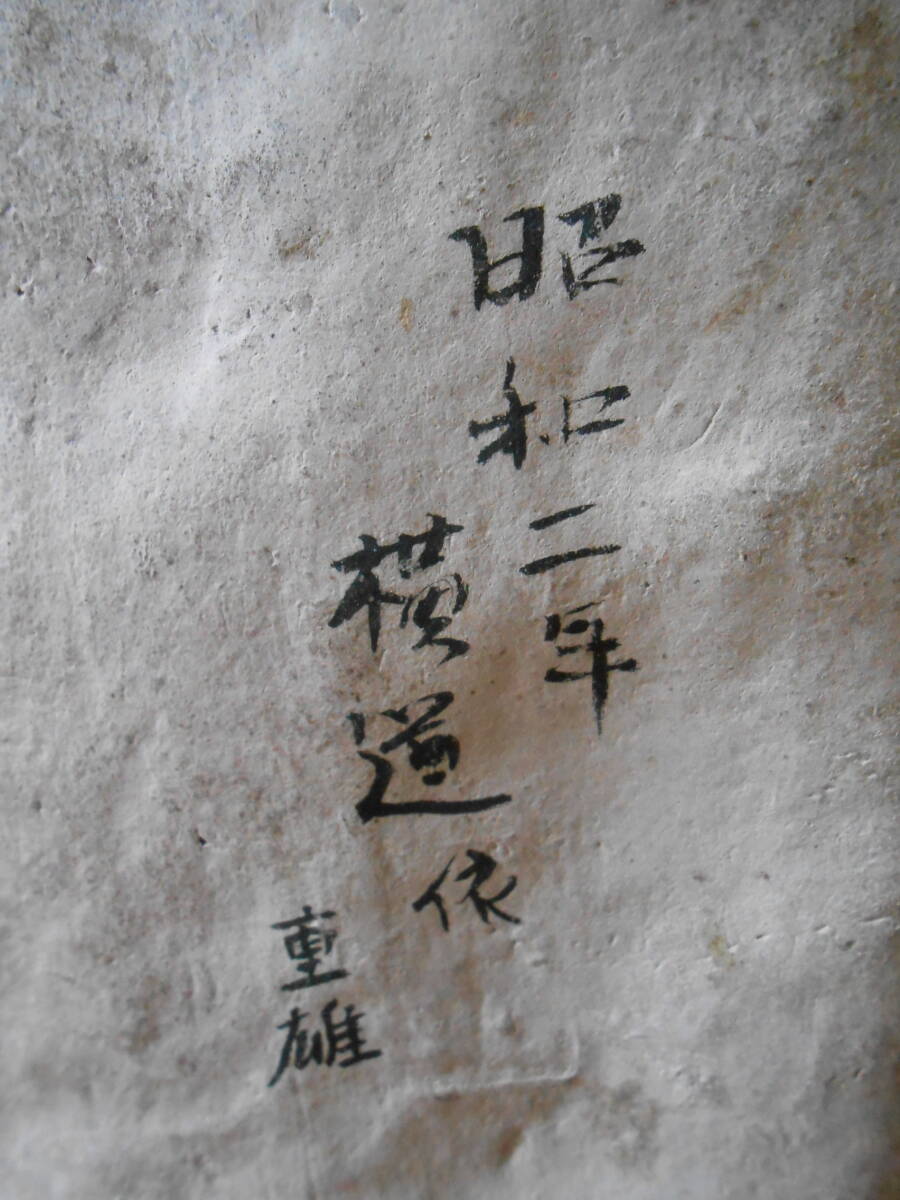 昭和二年
横道依
重雄